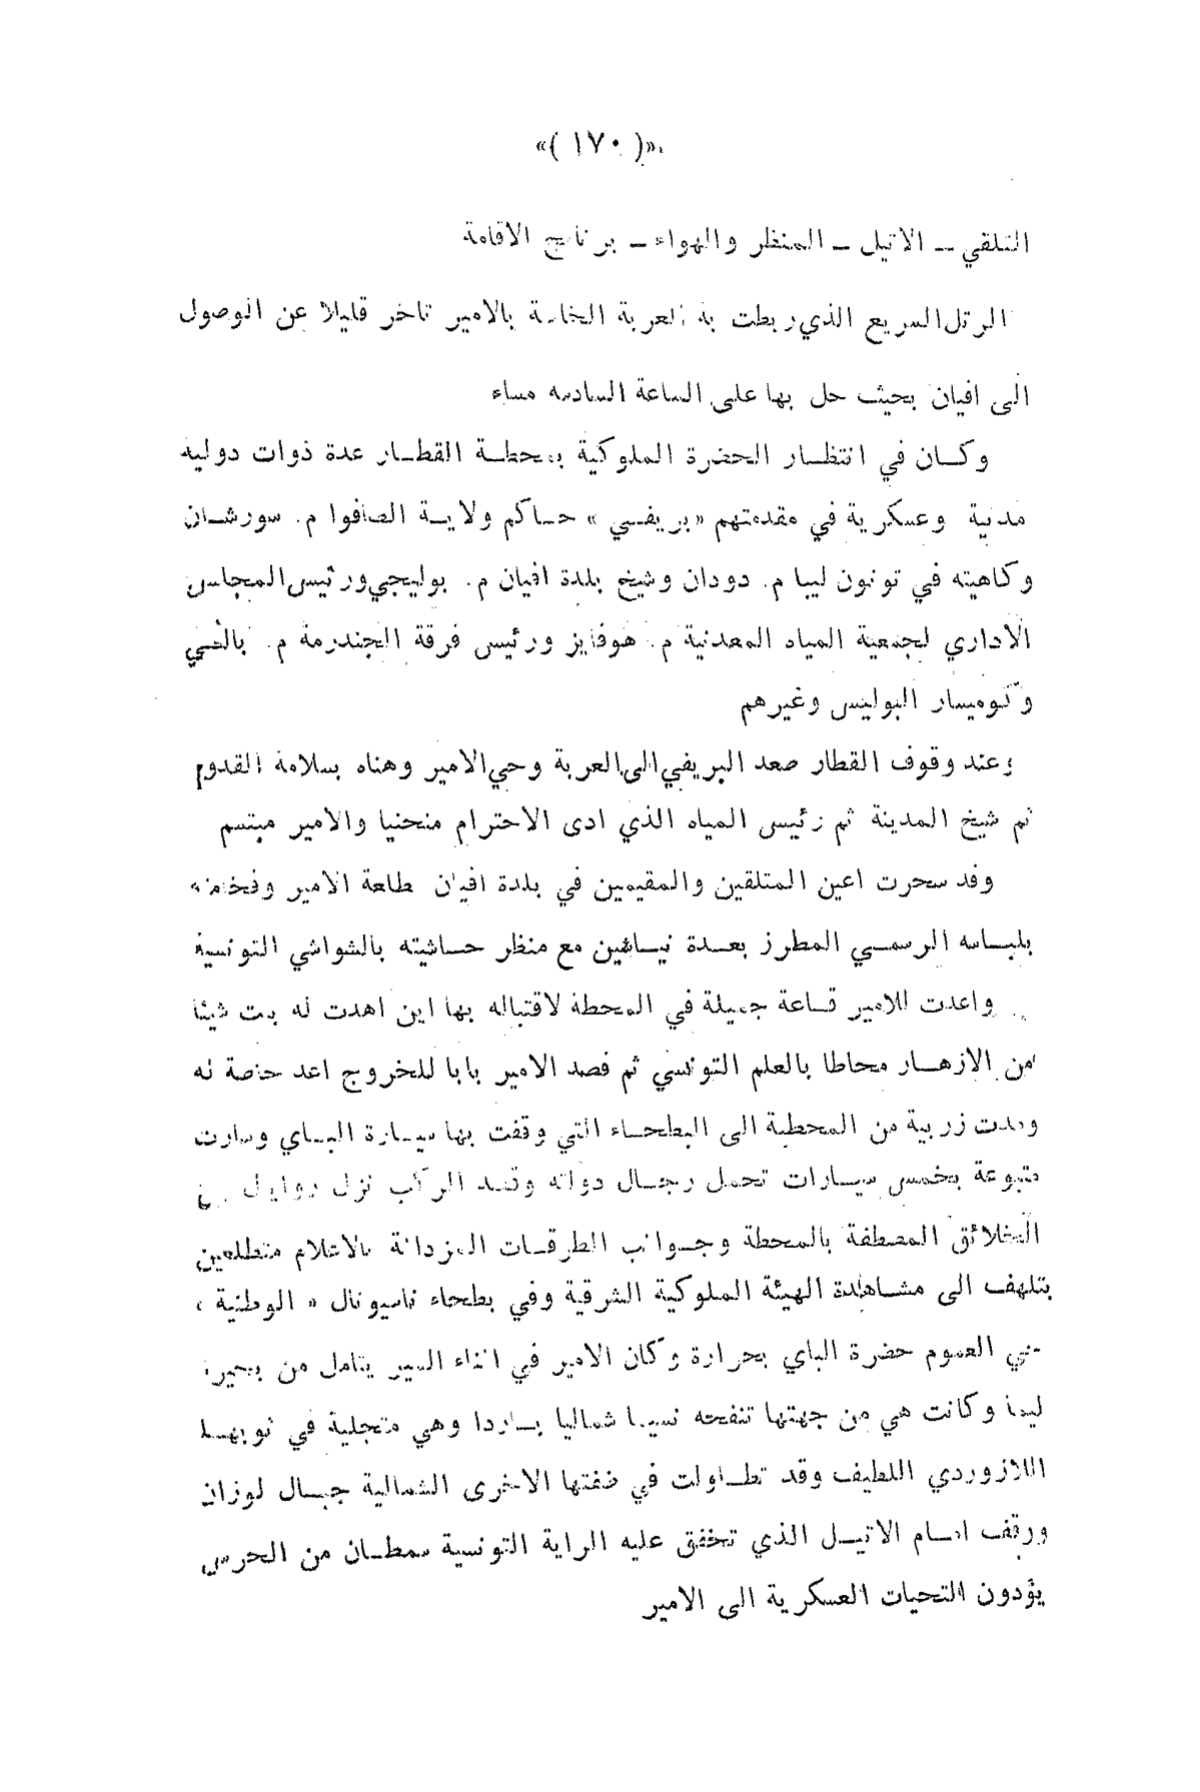 «( ١٧٠ )»
التلقي — الاتيل — المنظر والهواء — برنامج الاقامة
الرتل السريع الذي ربطت به العربة الخاصة بالامير تاخر قليلا عن الوصول
الى افيان بحيث حل بها على الساعة السادسه مساء
وكان في انتظار الحضرة الملوكية بمحطة القطار عدة ذوات دولية
مدنية وعسكرية في مقدمتهم «بريفي» حاكم ولاية الصافوا م. سورشان
وكاهيته في تونون ليبا م. دودان وشيخ بلدة افيان م. بوليجي ورئيس المجلس
الاداري لجمعية المياه المعدنية م. هوفايز ورئيس فرقة الجندرمة م.
وكوميسار البوليس وغيرهم
وعند وقوف القطار صعد البريفي الى العربة وحي الامير وهناه بسلامة القدوم
ثم شيخ المدينة ثم رئيس المياه الذي ادى الاحترام منحنيا والامير مبتسم
وقد سحرت اعين المتلقين والمقيمين في بلدة افيان طلعة الامير وفخامته
بلباسه الرسمي المطرز بعدة نياشين مع منظر حاشيته بالشواشي التونسية
واعدت للامير قاعة جميلة في المحطة لاقتباله بها اين اهدت له بنت شيئا
من الازهار محاطا بالعلم التونسي ثم قصد الامير بابا للخروج اعد خاصة له
ومدت زربية من المحطة الى البطحاء التي وقفت بها سيارة الباي وسارت
متبوعة بخمس سيارات تحمل رجال دولته وقصد الركب نزل روايال
الخلائق المصطفة بالمحطة وجوانب الطرقات المزدانة بالاعلام متطلعين
بتلهف الى مشاهدة الهيئة الملوكية الشرقية وفي بطحاء ناسيونال « الوطنية »
حي العموم حضرة الباي بحرارة وكان الامير في اثناء السير يتامل من بحيرة
ليما وكانت هي من جهتها تنفحه نسيما شماليا باردا وهي متجلية في ثوبها
اللازوردي اللطيف وقد تطاولت في ضفتها الاخرى الشمالية جبال لوزان
ووقف امام الاتيل الذي تخفق عليه الراية التونسية سمطان من الحرس
يؤدون التحيات العسكرية الى الامير